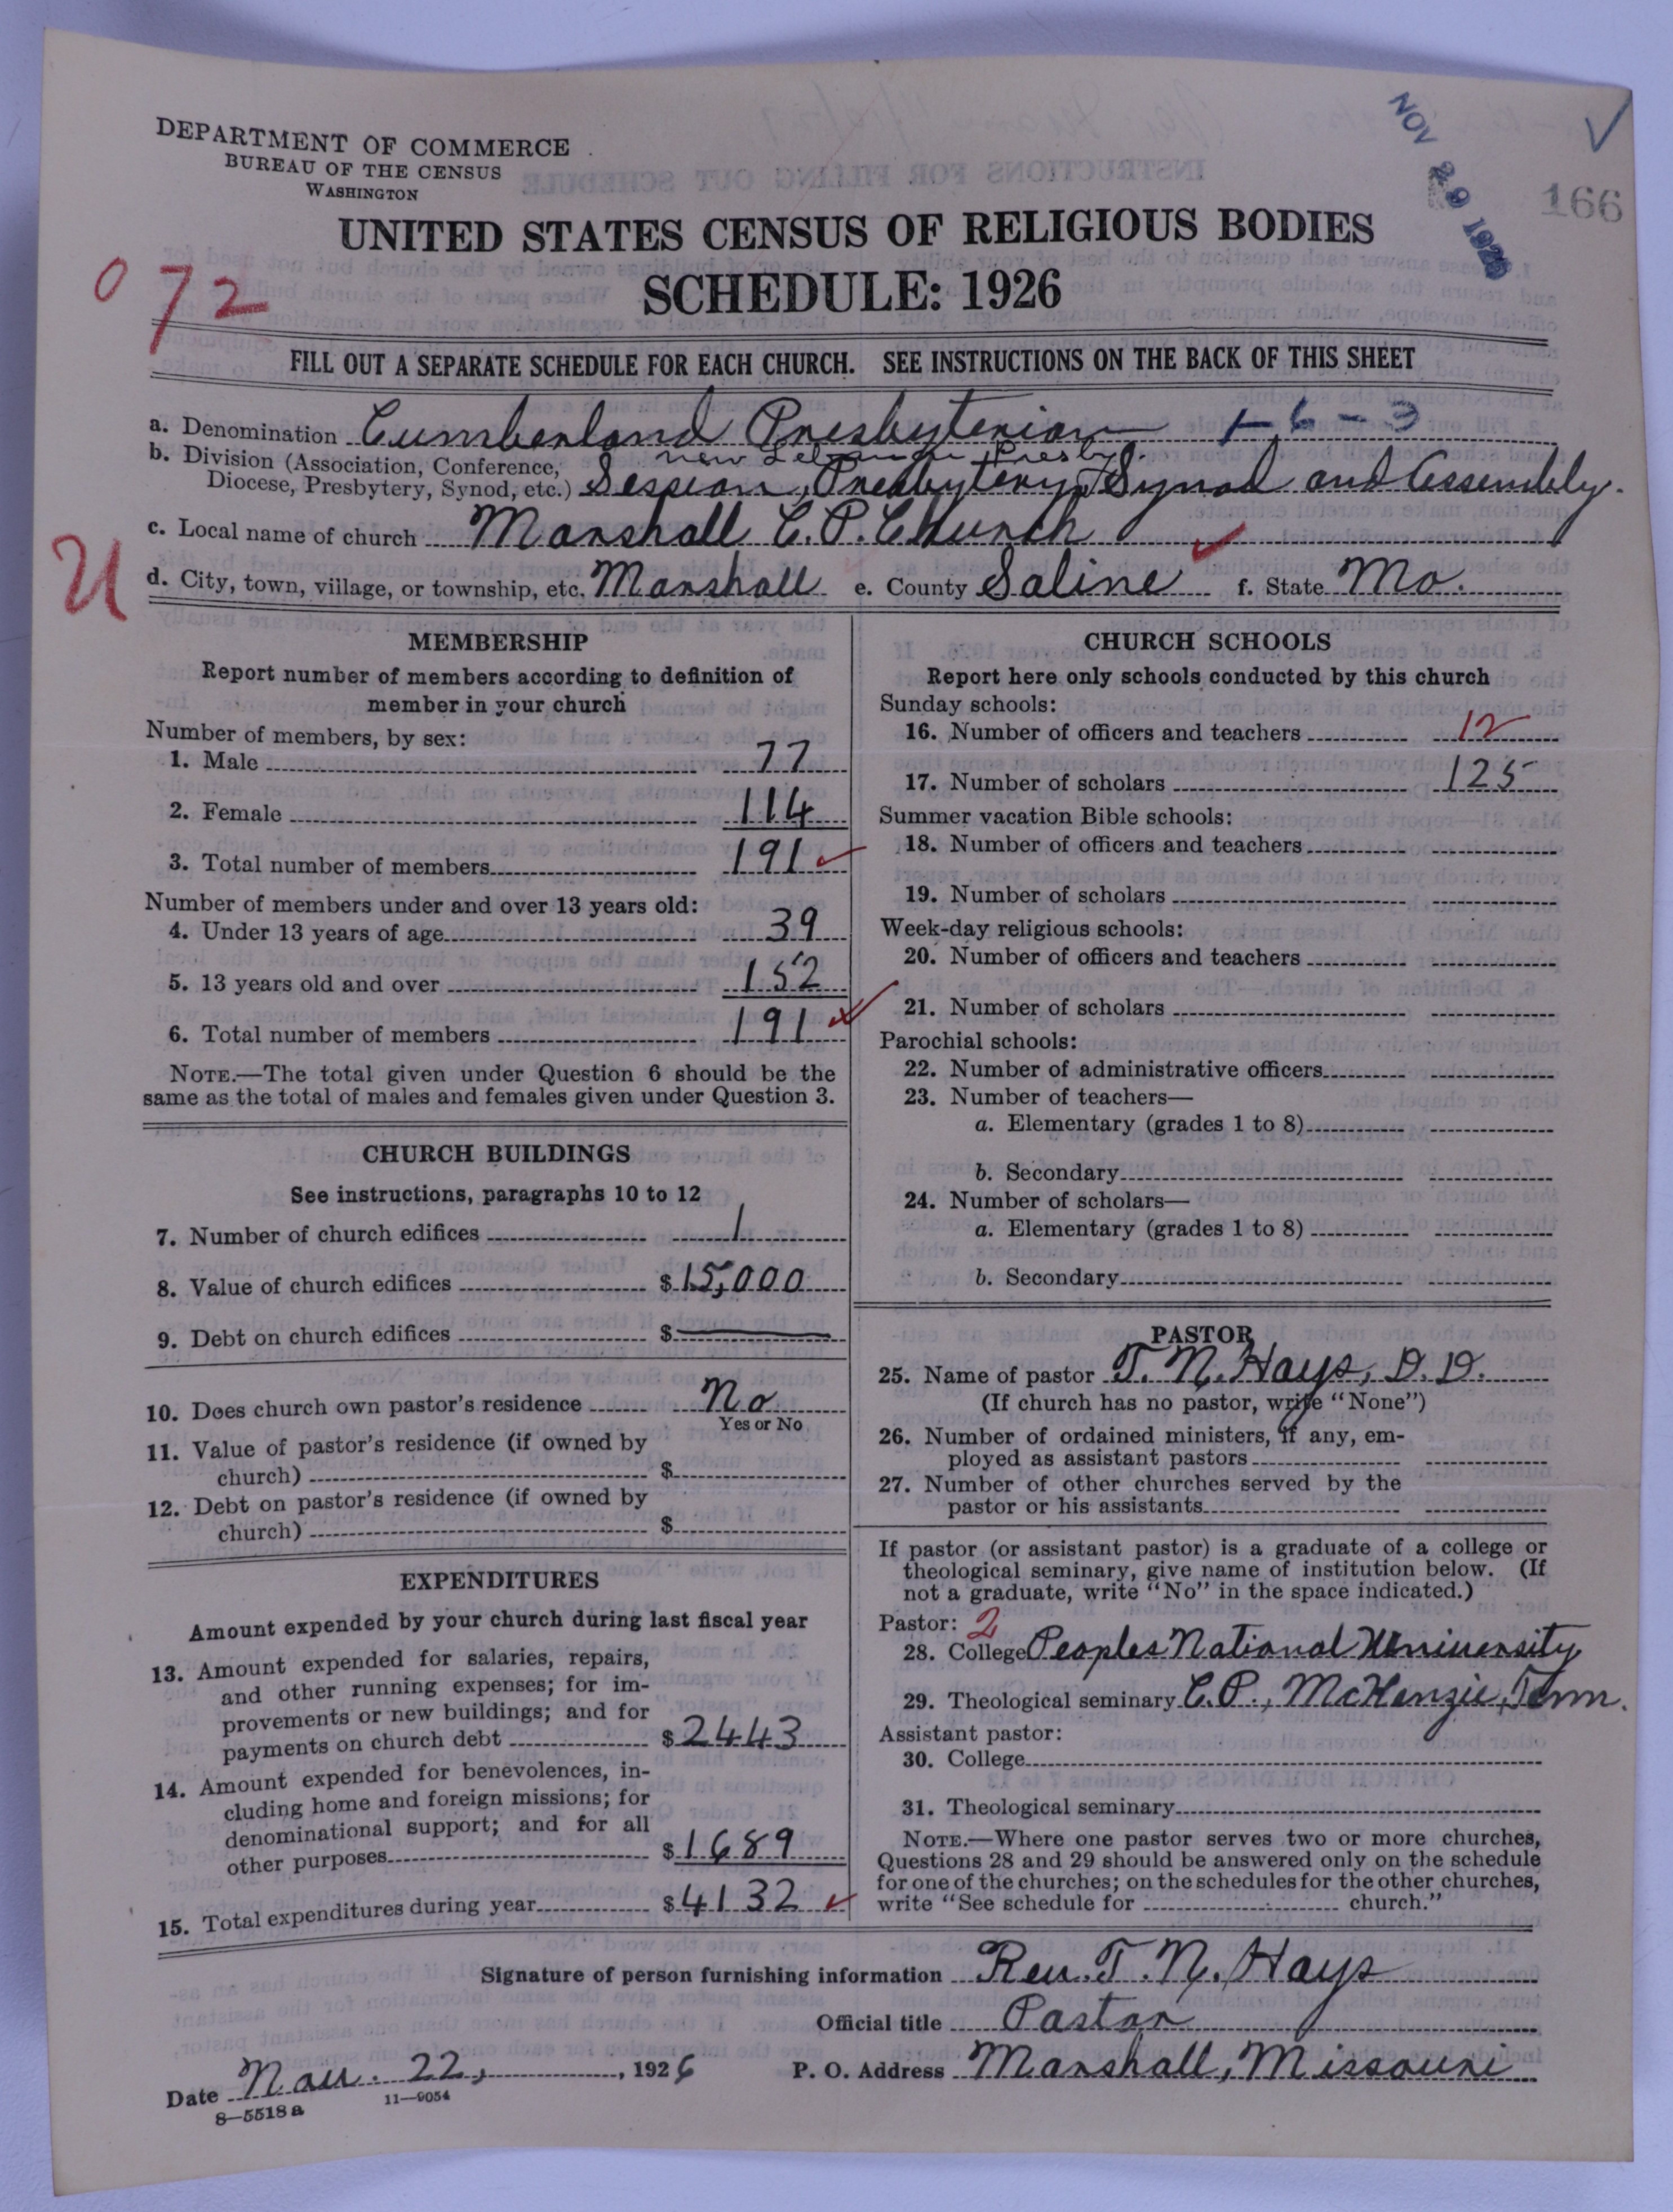 DEPARTMENT OF COMMERCE
BUREAU OF THE CENSUS
WASHINGTON
NOV 29 1926
166
UNITED STATES CENSUS OF RELIGIOUS BODIES
SCHEDULE: 1926
072
FILL OUT A SEPARATE SCHEDULE FOR EACH CHURCH. SEE INSTRUCTIONS ON THE BACK OF THIS SHEET
a. Denomination Cumberland Presbyterian 1-6-3
new Lebanon Presby.
b. Division (Association, Conference,
Diocese, Presbytery, Synod, etc.) Session, Presbytery, Synod and Assembly.
c. Local name of church Marshall C.P. Church
U
d. City, town, village, or township, etc. Marshall e. County Saline f. State Mo.
MEMBERSHIP
Report number of members according to definition of
member in your church
Number of members, by sex:
1. Male 77
2. Female 114
3. Total number of members 191
Number of members under and over 13 years old:
4. Under 13 years of age 39
5. 13 years old and over 152
6. Total number of members 191
NOTE.—The total given under Question 6 should be the
same as the total of males and females given under Question 3.
CHURCH BUILDINGS
See instructions, paragraphs 10 to 12
7. Number of church edifices 1
8. Value of church edifices $15,000
9. Debt on church edifices $
10. Does church own pastor's residence No
Yes or No
11. Value of pastor's residence (if owned by
church) $
12. Debt on pastor's residence (if owned by
church) $
EXPENDITURES
Amount expended by your church during last fiscal year
13. Amount expended for salaries, repairs,
and other running expenses; for im-
provements or new buildings; and for
payments on church debt $2443
14. Amount expended for benevolences, in-
cluding home and foreign missions; for
denominational support; and for all
other purposes $1689
15. Total expenditures during year $4132
CHURCH SCHOOLS
Report here only schools conducted by this church
Sunday schools:
16. Number of officers and teachers 12
17. Number of scholars 125
Summer vacation Bible schools:
18. Number of officers and teachers
19. Number of scholars
Week-day religious schools:
20. Number of officers and teachers
21. Number of scholars
Parochial schools:
22. Number of administrative officers
23. Number of teachers—
a. Elementary (grades 1 to 8)
b. Secondary
24. Number of scholars—
a. Elementary (grades 1 to 8)
b. Secondary
PASTOR
25. Name of pastor T. N. Hays, D.D.
(If church has no pastor, write "None")
26. Number of ordained ministers, if any, em-
ployed as assistant pastors
27. Number of other churches served by the
pastor or his assistants
If pastor (or assistant pastor) is a graduate of a college or
theological seminary, give name of institution below. (If
not a graduate, write "No" in the space indicated.)
Pastor: 2
28. College Peoples National University
29. Theological seminary C.P., McKenzie, Tenn.
Assistant pastor:
30. College
31. Theological seminary
NOTE.—Where one pastor serves two or more churches,
Questions 28 and 29 should be answered only on the schedule
for one of the churches; on the schedules for the other churches,
write "See schedule for church."
Signature of person furnishing information Rev. T. N. Hays
Official title Pastor
Date Nov. 22, , 1926 P. O. Address Marshall, Missouri
8—5518a 11—9054